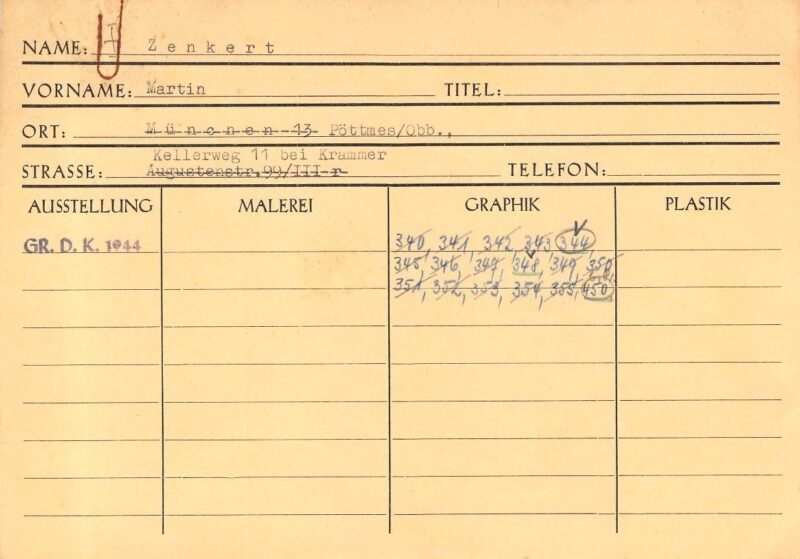 NAME: Zenkert
VORNAME: Martin TITEL:
ORT: München 13 Pöttmes/Obb.,
Kellerweg 11 bei Krammer
STRASSE: Augustenstr.99/III r TELEFON:
AUSSTELLUNG MALEREI GRAPHIK PLASTIK
GR. D. K. 1944 340, 341, 342, 343, 344,
345, 346, 347, 348, 349, 350,
351, 352, 353, 354, 355, 450